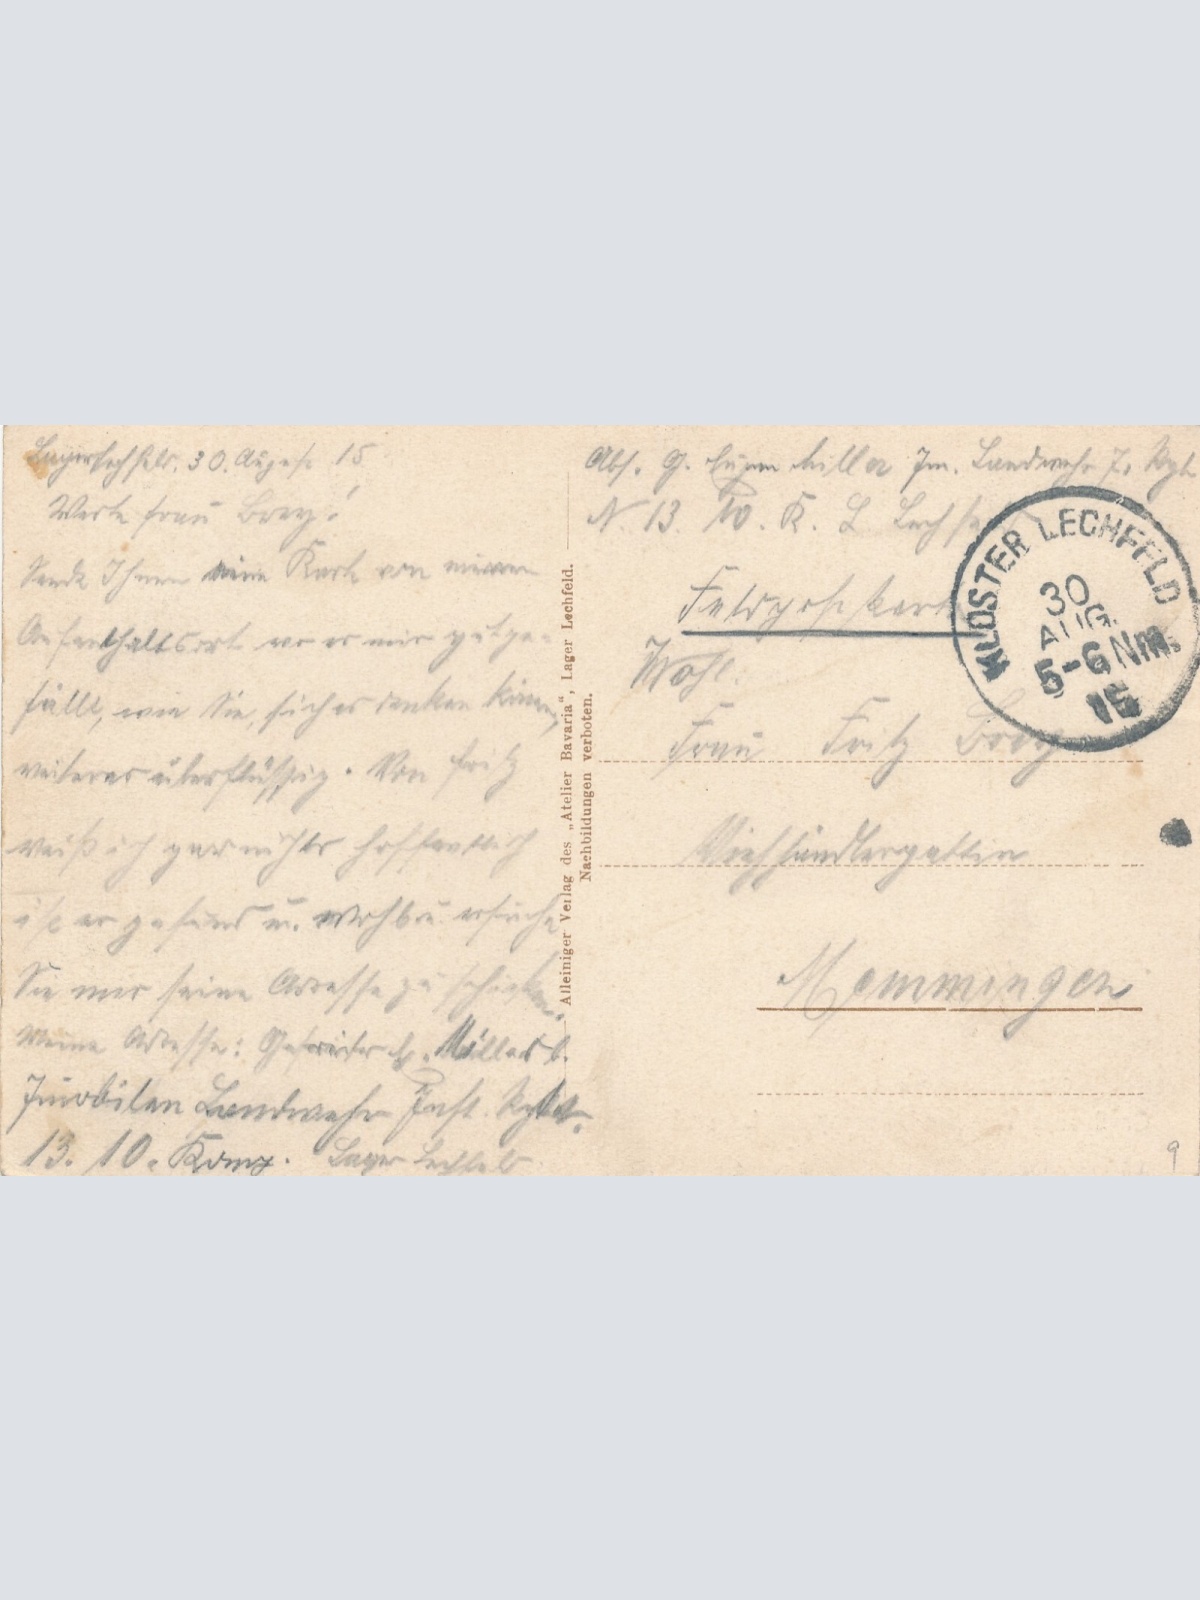 Lagerlechfeld. 30. August 15
Werte Frau Brey!
Sende Ihnen eine Karte von meinem
Aufenthaltsort wo es mir gutge-
fällt, wie Sie sich es denken können,
weiteres überflüssig. Von Fritz
weiß ich gar nichts hoffentlich
ist er gesund u. wohl u. ersuche
Sie mir seine Adresse zu schicken.
Meine Adresse: Gefreiter Miller b.
Imobilen Landwehr Inft. Rgt.
13. 10. Komp. Lager Lechfeld
Alleiniger Verlag des „Atelier Bavaria“, Lager Lechfeld.
Nachbildungen verboten.
Abs. G. Eugen Miller Im. Landwehr I. Rgt
N. 13 10. K. L Lechfeld
Feldpostkarte
KLOSTER LECHFELD
30
AUG.
5-6 Nm.
15
Wohl.
Frau Fritz Brey
Viehhändlergattin
Memmingen
9